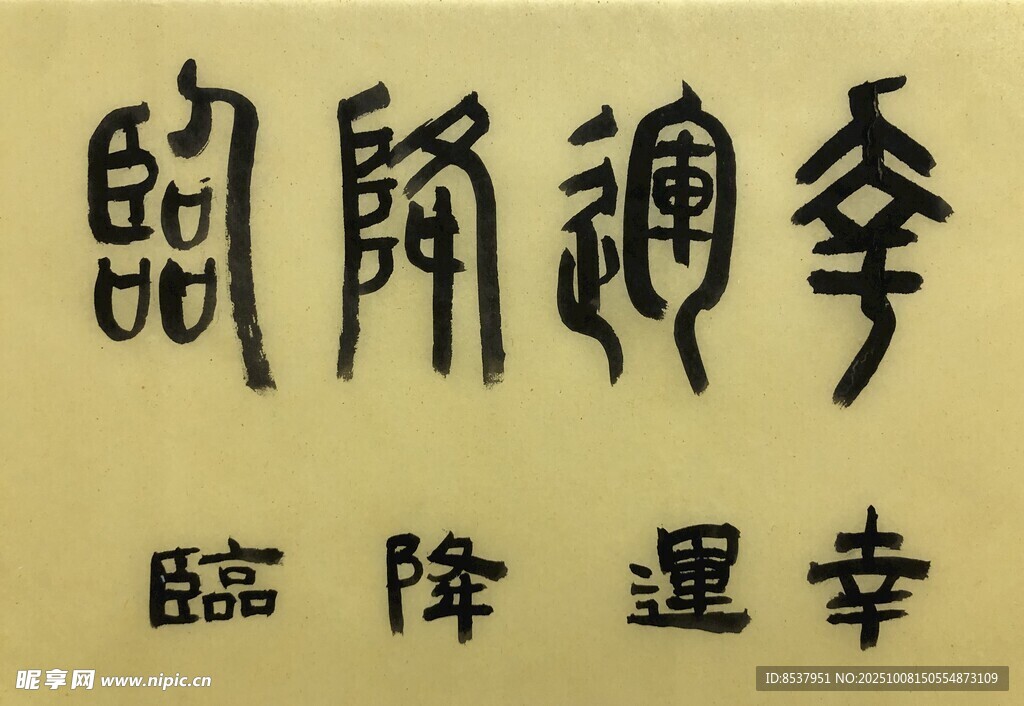 幸運降臨
幸運降臨
昵享网 www.nipic.cn
ID:8537951 NO:20251008150554873109